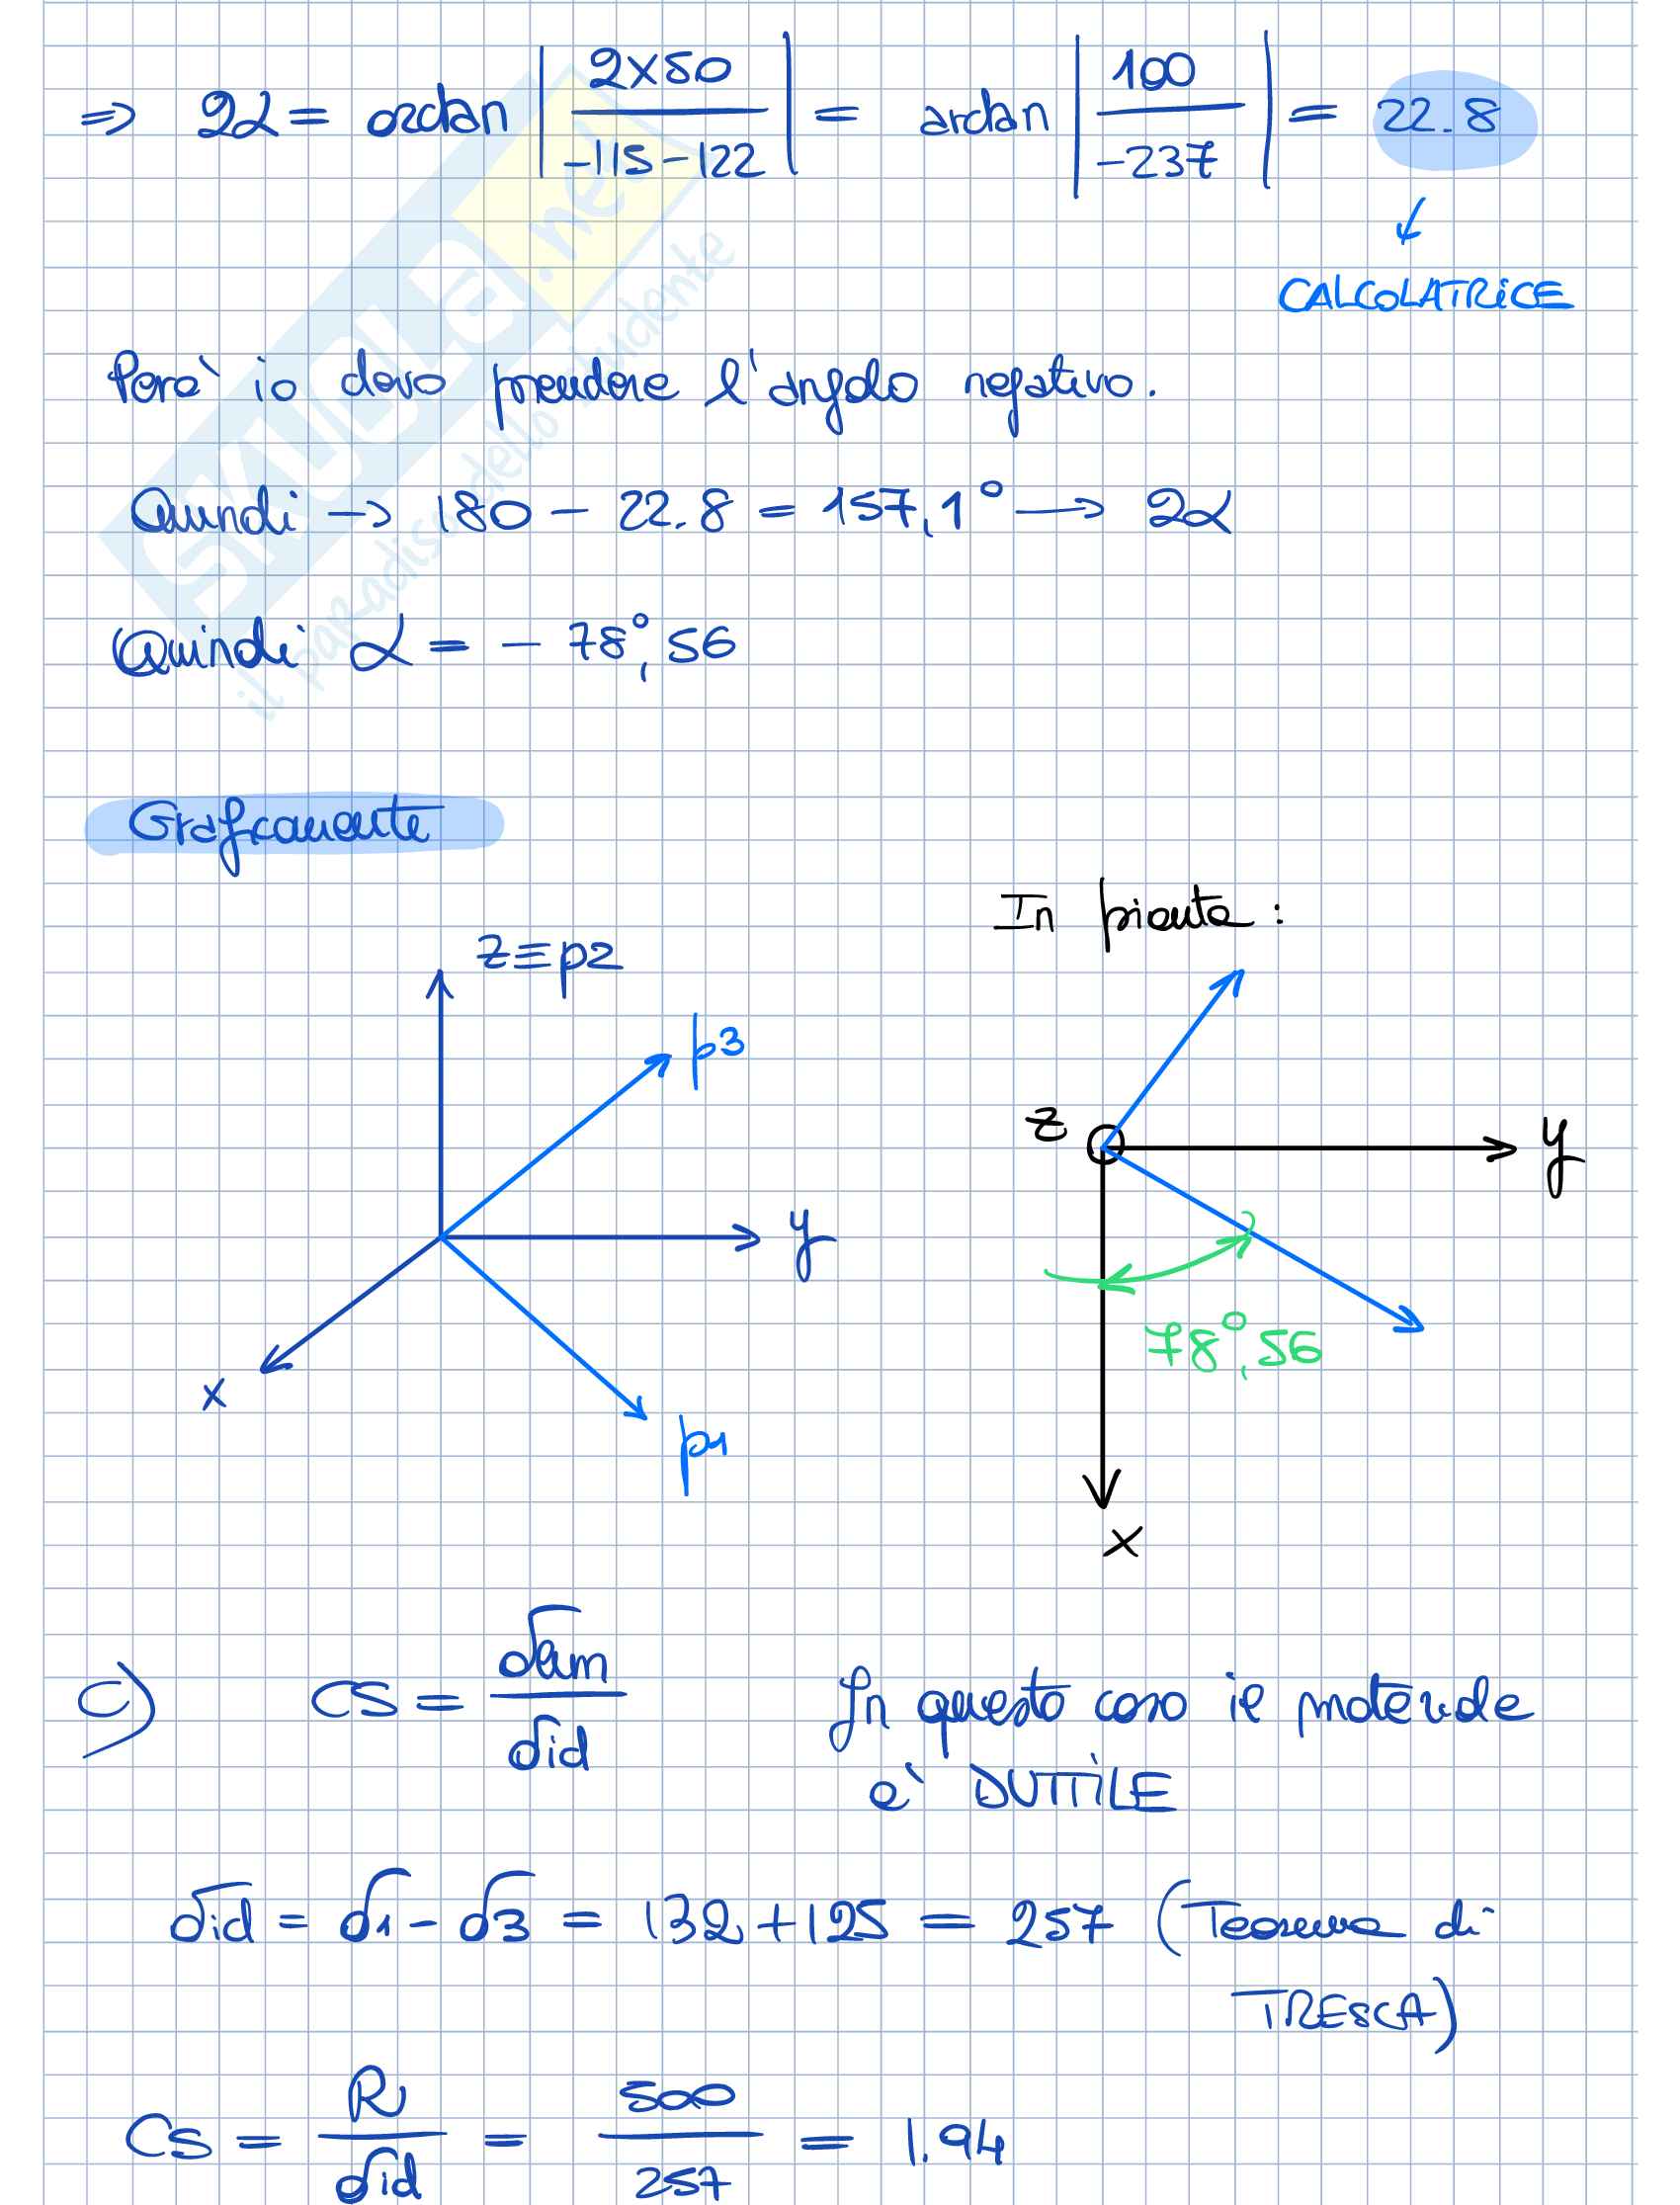 ⇒ 2α = arctan | 2×50 / -115-122 | = arctan | 100 / -237 | = 22.8
CALCOLATRICE
Però io devo prendere l'angolo negativo.
Quindi → 180 - 22.8 = 157,1° → 2α
Quindi α = - 78°,56
Graficamente
In pianta:
z≡p2
p3
y
x
p1
z
y
78°,56
x
c) CS = σam / σid In questo caso il materiale
è DUTTILE
σid = σ1 - σ3 = 132 + 125 = 257 (Teorema di
TRESCA)
CS = R / σid = 500 / 257 = 1.94
SKUOLA.net
il paradiso dello studente